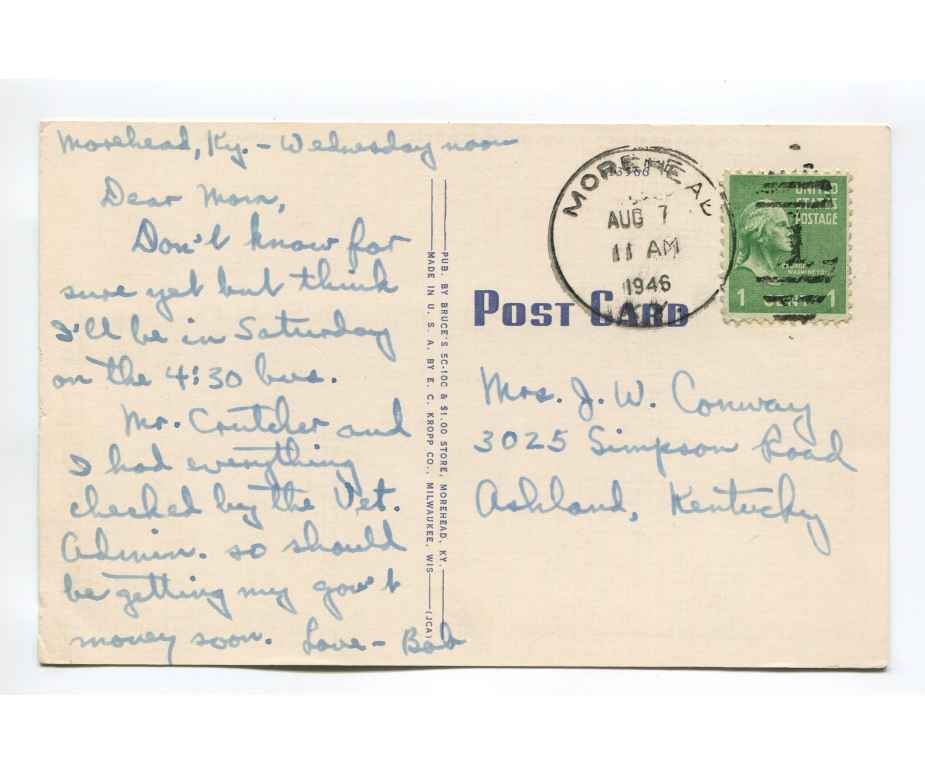 Morehead, Ky. - Wednesday noon
Dear Mom,
Don't know for
sure yet but think
I'll be in Saturday
on the 4:30 bus.
Mr. Crutcher and
I had everything
checked by the Vet.
Admin. so should
be getting my gov't
money soon. Love - Bob
PUB. BY BRUCE'S 5C-10C & $1.00 STORE, MOREHEAD, KY.
MADE IN U. S. A. BY E. C. KROPP CO., MILWAUKEE, WIS (JCA)
MOREHEAD
AUG 7
11 AM
1946
KY.
UNITED
STATES
POSTAGE
WASHINGTON
1 1
POST CARD
Mrs. J. W. Conway
3025 Simpson Road
Ashland, Kentucky